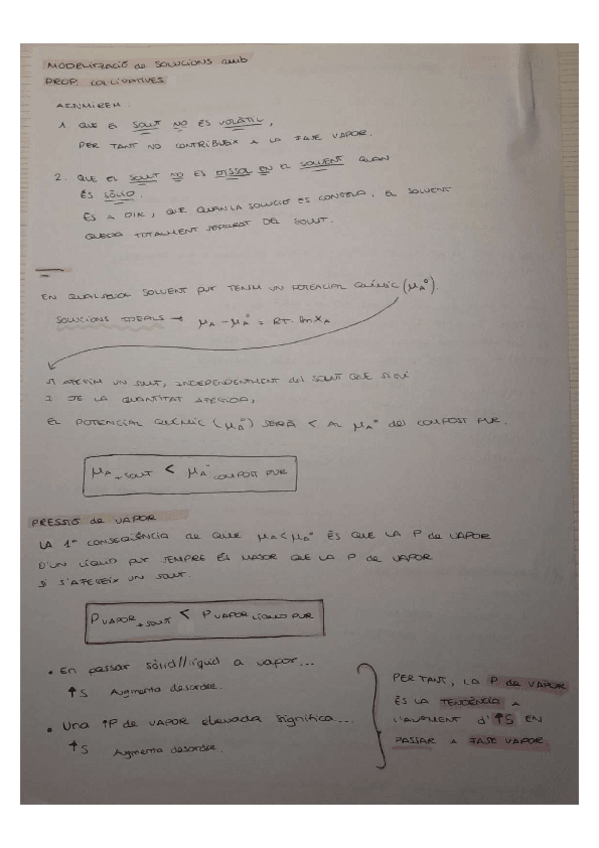 MODELITZACIÓ de SOLUCIONS amb
PROP. COL·LIGATIVES
ASSUMIREM:
1. QUE EL SOLUT NO ÉS VOLÀTIL,
PER TANT NO CONTRIBUEIX A LA FASE VAPOR.
2. QUE EL SOLUT NO ES DISSOL EN EL SOLVENT QUAN
ÉS SÒLID.
ÉS A DIR, QUE QUAN LA SOLUCIÓ ES CONGELA, EL SOLVENT
QUEDA TOTALMENT SEPARAT DEL SOLUT.
EN QUALSEVOL SOLVENT PUR TENIM UN POTENCIAL QUÍMIC (μA°).
SOLUCIONS IDEALS → μA - μA° = RT · ln XA
SI AFEGIM UN SOLUT, INDEPENDENTMENT del SOLUT QUE SIGUI
I DE LA QUANTITAT AFEGIDA,
EL POTENCIAL QUÍMIC (μA°) SERÀ < AL μA° del COMPOST PUR.
μA + SOLUT < μA° COMPOST PUR
PRESSIÓ de VAPOR
LA 1ª CONSEQÜÈNCIA de QUE μA < μA° ÉS QUE LA P de VAPOR
D'UN LÍQUID PUR SEMPRE ÉS MAJOR QUE LA P de VAPOR
SI S'AFEGEIX UN SOLUT.
P VAPOR + SOLUT < P VAPOR LÍQUID PUR
• En passar sòlid//líquid a vapor...
↑S Augmenta desordre.
• Una ↑P de VAPOR elevada significa...
↑S Augmenta desordre.
PER TANT, LA P de VAPOR
ÉS LA TENDÈNCIA A
L'AUGMENT d'↑S EN
PASSAR A FASE VAPOR